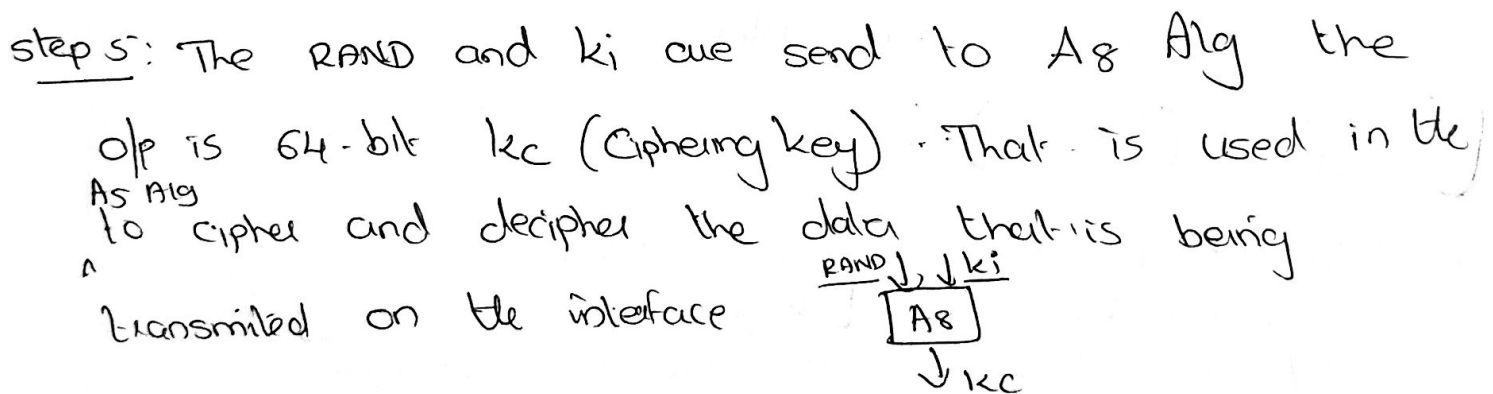 step 5: The RAND and ki are send to A8 Alg the
o/p is 64-bit kc (Ciphering key). That is used in the
A5 Alg
to cipher and decipher the data that is being
RAND ki
transmited on the interface
A8
kc